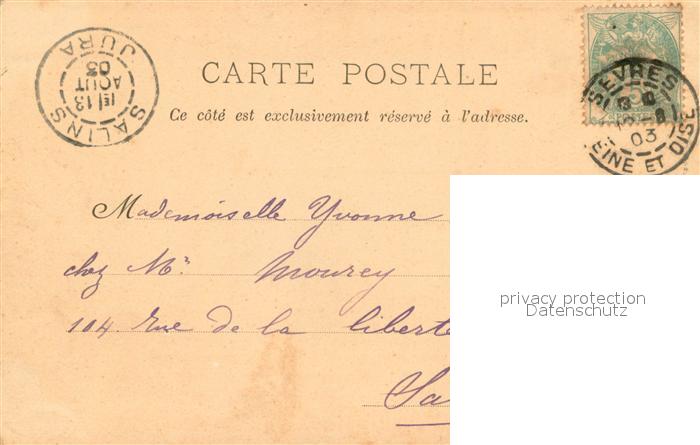 SALINS
JURA
13
AOUT
03
CARTE POSTALE
Ce côté est exclusivement réservé à l'adresse.
5
SEVRES
13
03
EINE ET OISE
Mademoiselle Yvonne
chez Mr. Mourey
104 Rue de la liberte
Sa
privacy protection
Datenschutz